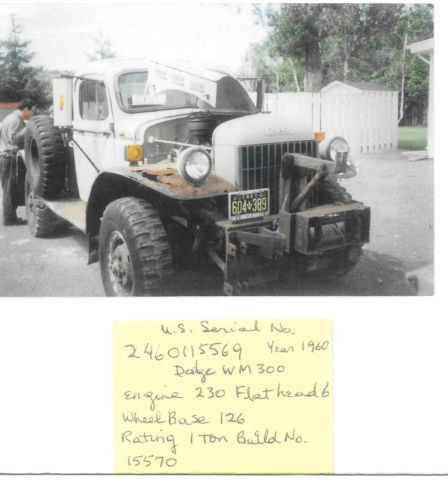 604·389
U.S. Serial No.
2460115569 Year 1960
Dodge WM300
Engine 230 Flathead 6
Wheel Base 126
Rating 1 Ton Build No.
15570